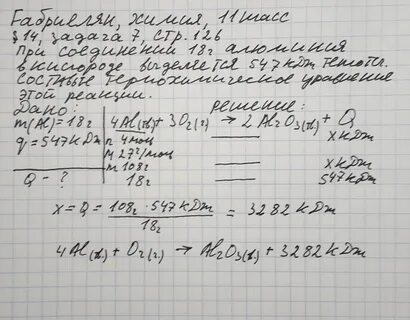 Габриелян, химия, 11 класс
§ 14, задача 7, стр. 126
При соединении 18г алюминия
в кислороде выделяется 547 кДж теплоты.
Составьте термохимическое уравнение
этой реакции.
Дано: Решение:
m(Al) = 18г 4Al(тв) + 3O₂(г) → 2Al₂O₃(тв) + Q
q = 547 кДж n 4 моль —— x кДж
M 27 г/моль ——
m 108г —— x кДж
Q = ? 18г —— 547 кДж
x = Q = 108г · 547 кДж / 18г = 3282 кДж
4Al(тв) + O₂(г) → Al₂O₃(тв) + 3282 кДж